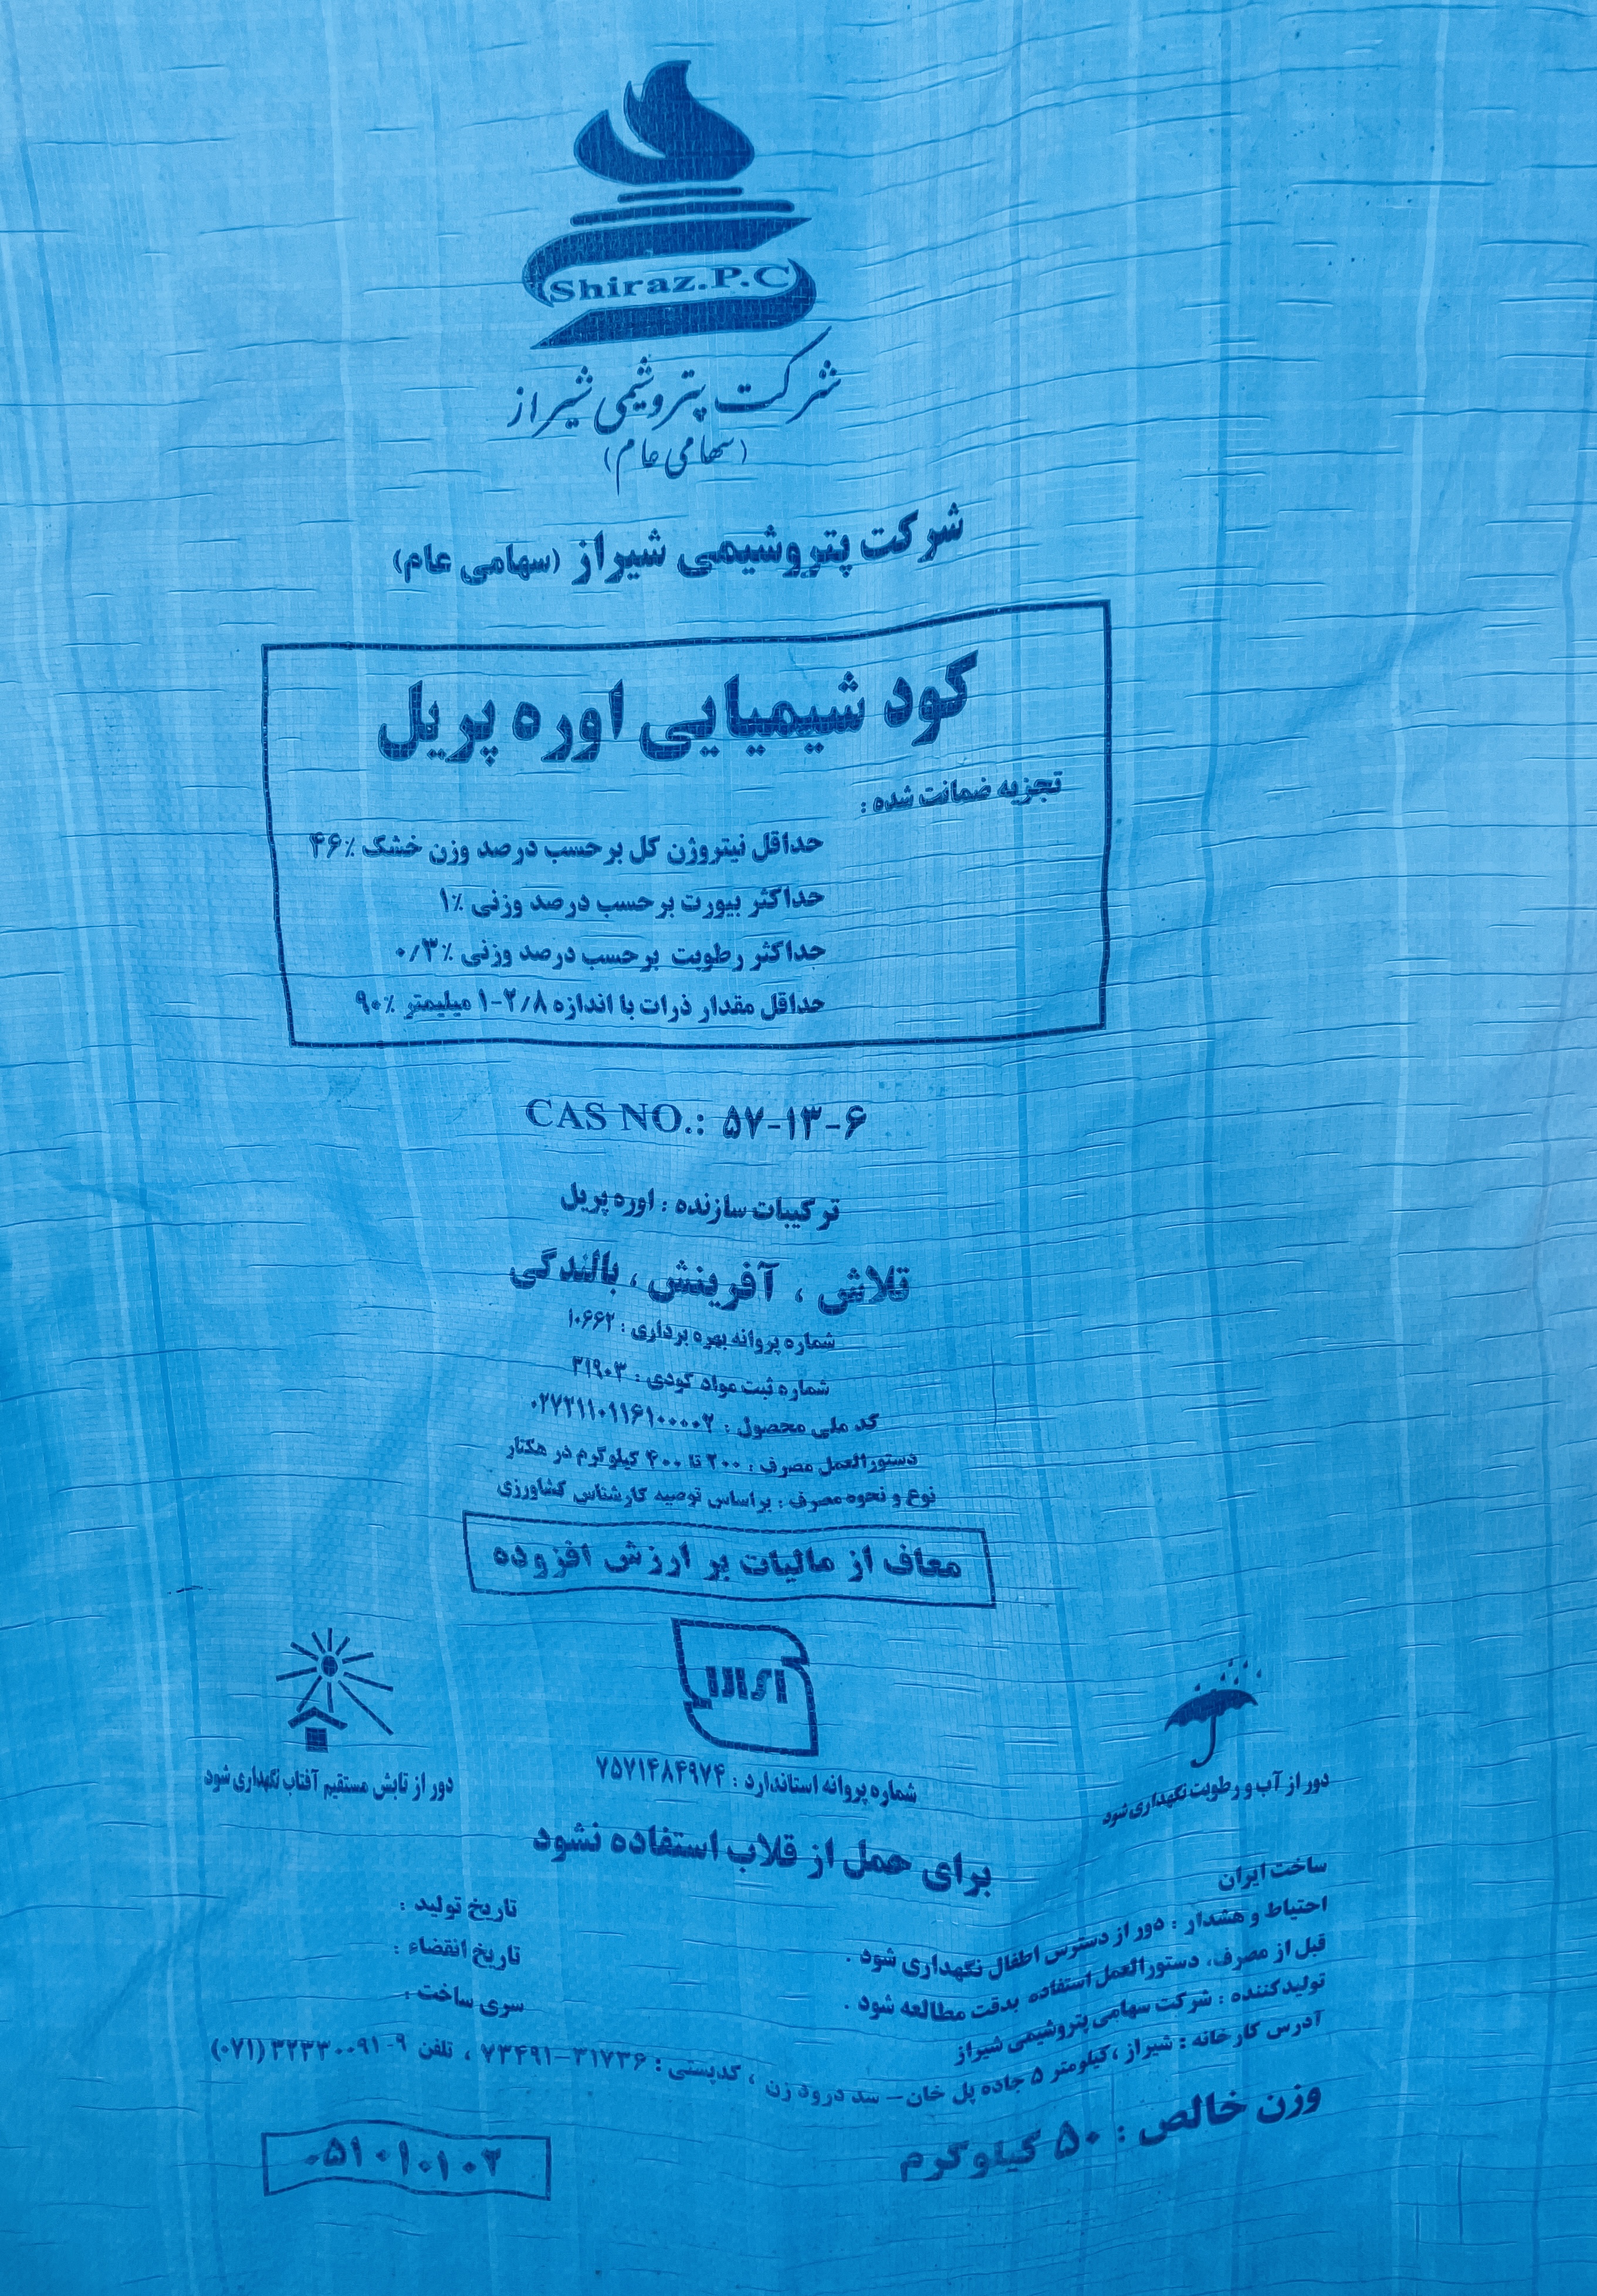 Shiraz.P.C
شرکت پتروشیمی شیراز
(سهامی عام)
شرکت پتروشیمی شیراز (سهامی عام)
کود شیمیایی اوره پریل
تجزیه ضمانت شده :
حداقل نیتروژن کل بر حسب درصد وزن خشک ٪۴۶
حداکثر بیورت بر حسب درصد وزنی ٪۱
حداکثر رطوبت بر حسب درصد وزنی ٪۰/۳
حداقل مقدار ذرات با اندازه ۲/۸-۱ میلیمتر ٪۹۰
CAS NO.: ۵۷-۱۳-۶
ترکیبات سازنده : اوره پریل
تلاش ، آفرینش ، بالندگی
شماره پروانه بهره برداری : ۱۰۶۶۲
شماره ثبت مواد کودی : ۳۱۹۰۳
کد ملی محصول : ۰۲۷۲۱۱۰۱۱۶۱۰۰۰۰۲
دستورالعمل مصرف : ۲۰۰ تا ۴۰۰ کیلوگرم در هکتار
نوع و نحوه مصرف : براساس توصیه کارشناس کشاورزی
معاف از مالیات بر ارزش افزوده
دور از تابش مستقیم آفتاب نگهداری شود
شماره پروانه استاندارد : ۷۵۷۱۴۸۴۹۷۴
دور از آب و رطوبت نگهداری شود
برای حمل از قلاب استفاده نشود
ساخت ایران
احتیاط و هشدار : دور از دسترس اطفال نگهداری شود .
قبل از مصرف، دستورالعمل استفاده بدقت مطالعه شود .
تاریخ تولید :
تاریخ انقضاء :
سری ساخت :
تولیدکننده : شرکت سهامی پتروشیمی شیراز
آدرس کارخانه : شیراز ،کیلومتر ۵ جاده پل خان– سد درود زن ، کدپستی : ۳۱۷۳۶–۷۳۴۹۱ ، تلفن ۹-۳۲۳۳۰۰۹۱ (۰۷۱)
وزن خالص : ۵۰ کیلوگرم
۰۵۱۰۱۰۱۰۲